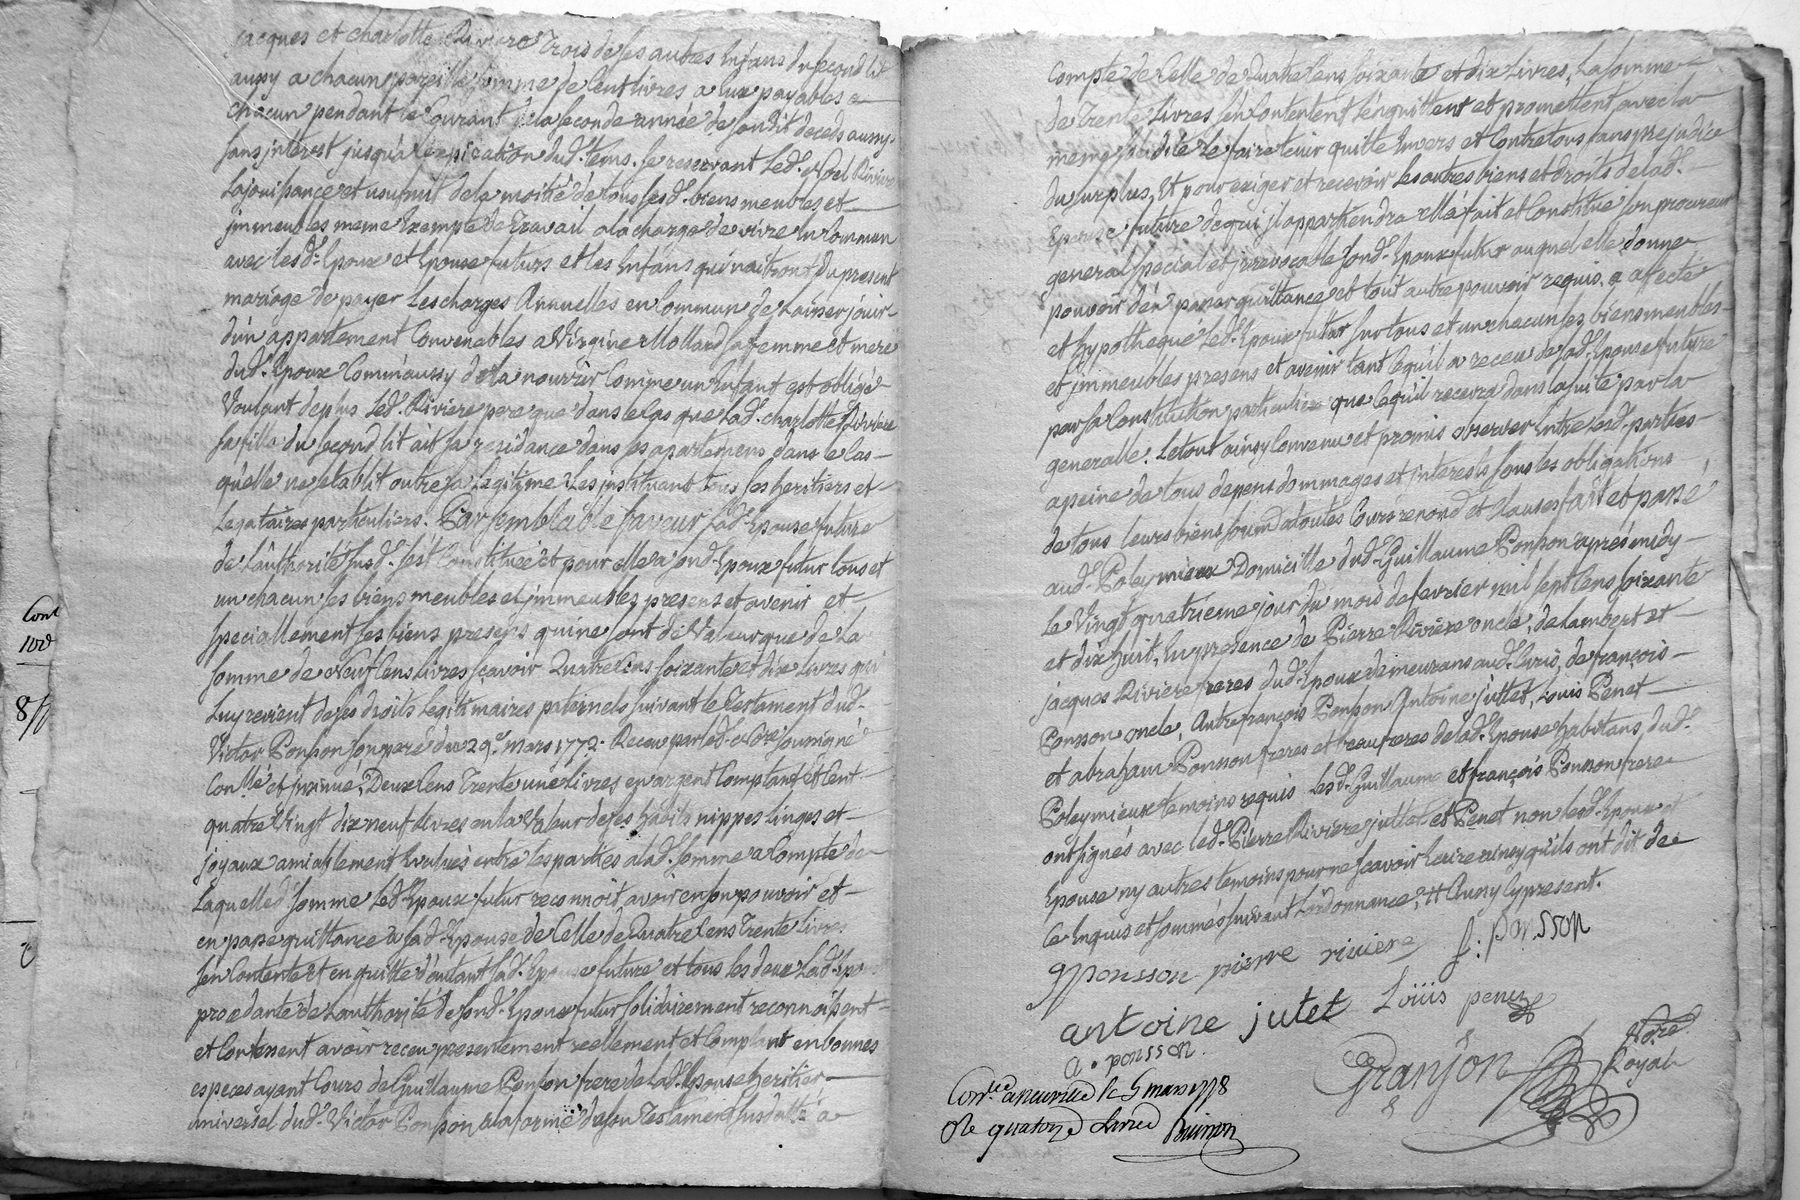 jacques et charlotte Riviere trois de ses autres Enfans du second lit
aussy a chacun pareille somme de Cent livres a Eux payables a
chacun pendant le Courant de la seconde année de son dit deceds aussy
sans interest jusqu'a l'expiration dud. tems. se reservant led. Noel Riviere
la jouissance et usufruit de la moitié de tous sesd. biens meubles et
immeubles meme Exempte de travail a la charge de vivre en Commun
avec lesd. Epoux et Epouse futurs et les Enfans qui naitront du present
mariage de payer les charges Annuelles en Commun de laisser jouir
d'un appartement Convenables a Virgine Mollard sa femme et mere
dud. Epoux Comm'aussy de la nourrir Comme un Enfant est obligé
Voulant de plus led. Riviere pere que dans le Cas que lad. charlotte Riviere
sa fille du second lit ait sa residance dans ses apartemens dans le Cas
qu'elle ne s'etablit outre sa legitime les instituant tous ses heritiers et
Legataires particuliers. Par semblable faveur lad. Epouse future
de l'authorité susd. s'est Constituée et pour elle a sond. Epoux futur tous et
un chacun ses biens meubles et immeubles presens et avenir et
speciallement ses biens presens qui ne sont de Valeur que de la
somme de Neuf Cens livres scavoir Quatre Cens soixante et dix livres qui
Luy revient de ses droits legitimaires paternels suivant le Testament dud.
Victor Ponson son pere du 29e mars 1772. Receu par led. Nore soussigné
Conllé et insinué, Deux Cens Trente une livres en argent Comptant et Cent
quatre Vingt dix neuf livres en la Valeur de ses habits nippes linges et
joyaux amiablement Evalués entre les parties a lad. somme a Compte de
Laquelle d. somme led. Epoux futur reconnoit avoir en son pouvoir et
en passe quittance a sad. Epouse de Celle de Quatre Cens Trente livres
s'en Contente et en quitte d'autant sad. Epouse future et tous les deux lad. Epouse
procedante de l'authorité de sond. Epoux futur solidairement reconnoissent
et Confessent avoir receu presentement reellement et Comptant en bonnes
especes ayant Cours de Guillaume Ponson frere de lad. Epouse heritier
universel dud. Victor Ponson a la forme de son Testament susdatté a
Cont
100
8
Compte de Celle de Quatre Cens soixante et dix livres, la somme
de Trente livres s'en Contentent l'en quittent et promettent avec la
meme solidité le faire tenir quitte Envers et Contre tous sans prejudice
du surplus, Et pour exiger et recevoir les autres biens et droits de lad.
Epouse future de qui il appartiendra elle a fait et Constitué son procureur
general special et irrevocable sond. Epoux futur auquel elle donne
pouvoir d'en passer quittance et tout autre pouvoir requis. a affecté
et hypothequé led. Epoux futur sur tous et un chacun ses biens meubles
et immeubles presens et avenir tant ce qu'il a receu de sad. Epouse future
par sa Constitution particuliere que ce qu'il recevra dans la suite par la
generalle. Le tout ainsy Convenu et promis observer Entre lesd. parties
a peine de tous depens dommages et interests sous les obligations
de tous leurs biens soumis a toutes Cours renond et Clauses fait et passé
aud. Poleymieux Domicille dud. Guillaume Ponson après midy
Le Vingt quatrieme jour du mois de fevrier mil sept Cens soixante
et dix huit, En presence de Pierre Riviere oncle, de Lambert et
jacques Riviere freres dud. Epoux demeurans aud. Curis, de françois
Ponson oncle, Autre françois Ponson Antoine juttet, Louis Penet
et abraham Ponson freres et beaufreres de lad. Epouse habitans dud.
Poleymieux temoins requis lesd. Guillaume et françois Ponson frere
ont signés avec led. Pierre Riviere juttet et Penet non lesd. Epoux et
Epouse ny autres temoins pour ne scavoir Ecrire ainsy qu'ils ont dit de
Ce Enquis et sommés suivant l'ordonnance, # Aussy Cy present.
g ponsson pierre riviere f: ponsson
antoine jutet Loüis penez
a. ponsson.
Granjon Nore Royal
Conlé a neuville le 5 mars 1778
R le quatorze livres